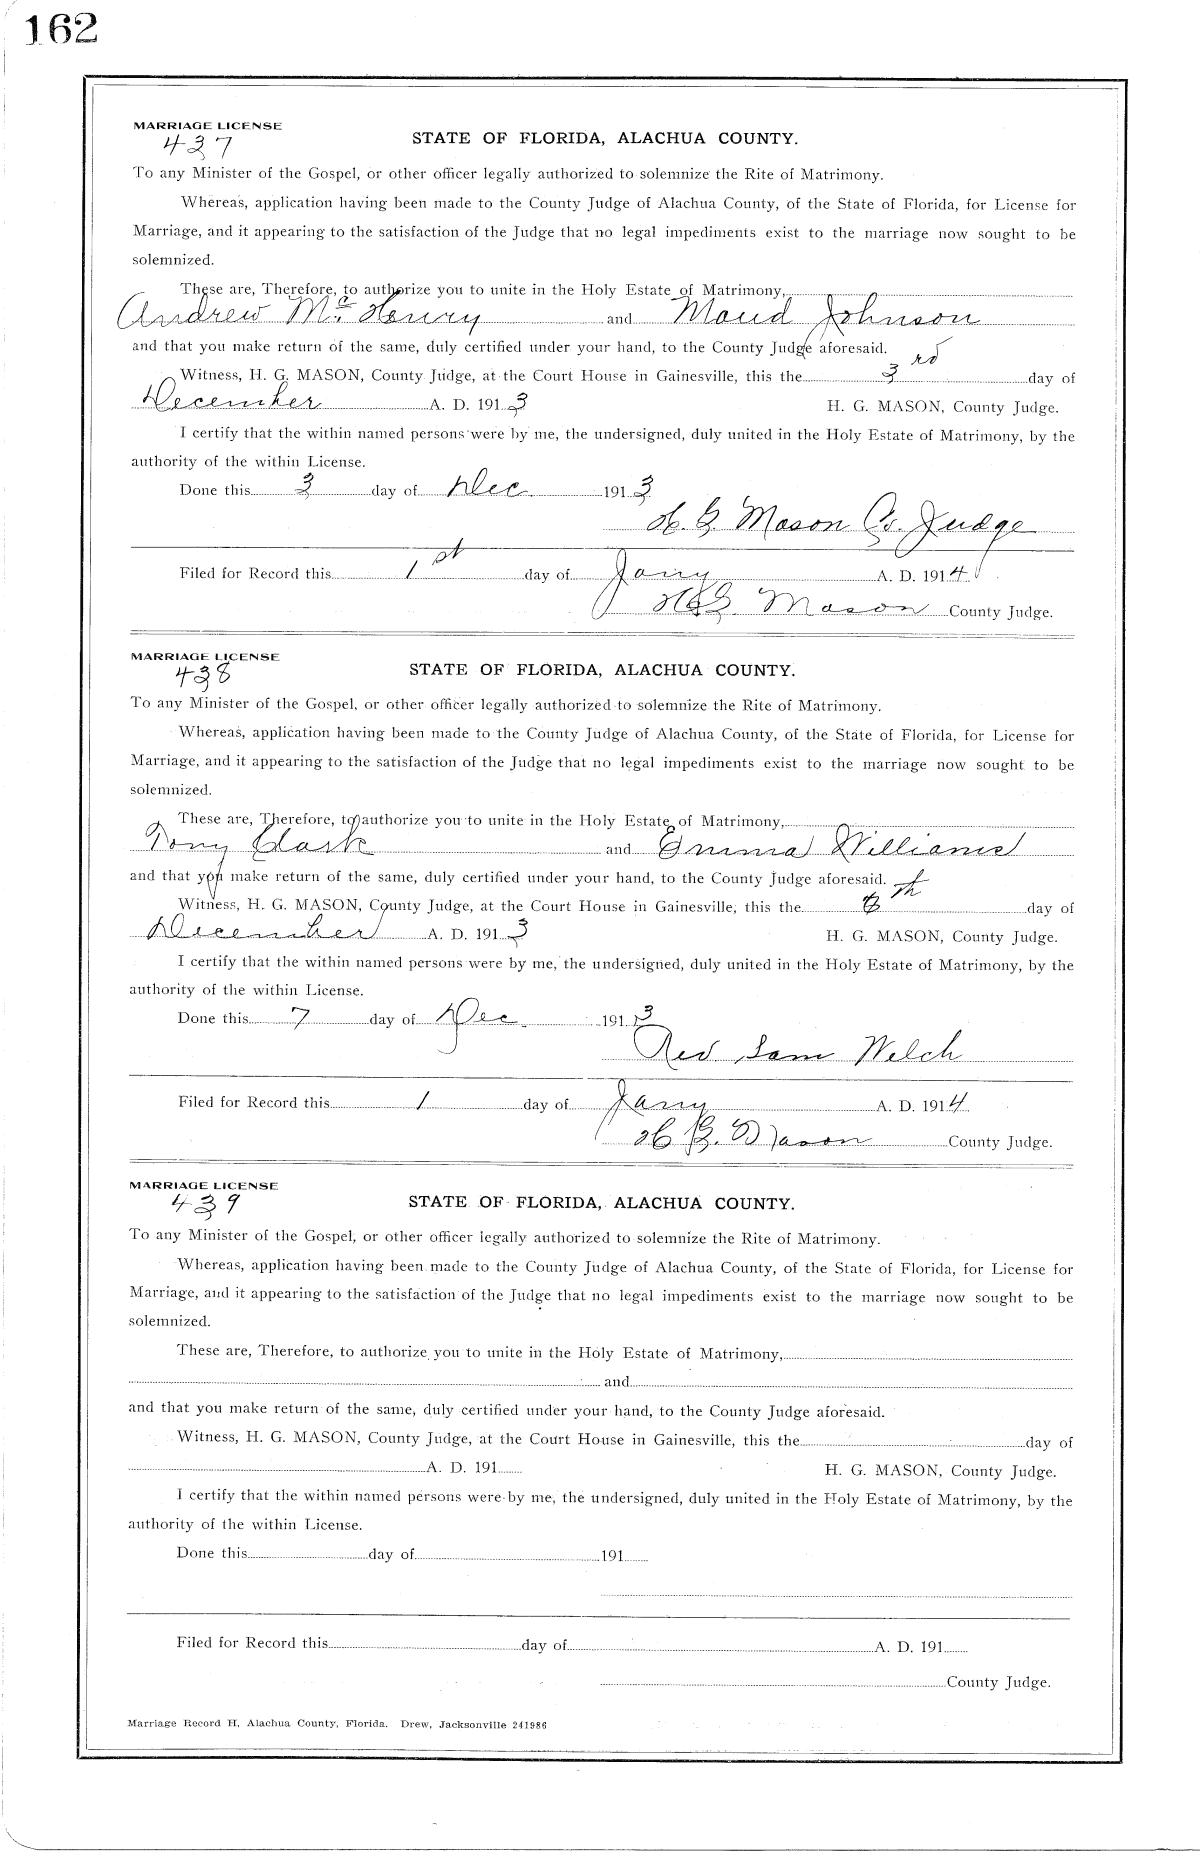 162
MARRIAGE LICENSE
437
STATE OF FLORIDA, ALACHUA COUNTY.
To any Minister of the Gospel, or other officer legally authorized to solemnize the Rite of Matrimony.
Whereas, application having been made to the County Judge of Alachua County, of the State of Florida, for License for
Marriage, and it appearing to the satisfaction of the Judge that no legal impediments exist to the marriage now sought to be
solemnized.
These are, Therefore, to authorize you to unite in the Holy Estate of Matrimony,
Andrew McHenry and Maud Johnson
and that you make return of the same, duly certified under your hand, to the County Judge aforesaid.
Witness, H. G. MASON, County Judge, at the Court House in Gainesville, this the 3rd day of
December A. D. 1913 H. G. MASON, County Judge.
I certify that the within named persons were by me, the undersigned, duly united in the Holy Estate of Matrimony, by the
authority of the within License.
Done this 3 day of Dec 1913
H. G. Mason Co. Judge
Filed for Record this 1st day of Jany A. D. 1914
H G Mason County Judge.
MARRIAGE LICENSE
438
STATE OF FLORIDA, ALACHUA COUNTY.
To any Minister of the Gospel, or other officer legally authorized to solemnize the Rite of Matrimony.
Whereas, application having been made to the County Judge of Alachua County, of the State of Florida, for License for
Marriage, and it appearing to the satisfaction of the Judge that no legal impediments exist to the marriage now sought to be
solemnized.
These are, Therefore, to authorize you to unite in the Holy Estate of Matrimony,
Tony Clark and Emma Williams
and that you make return of the same, duly certified under your hand, to the County Judge aforesaid.
Witness, H. G. MASON, County Judge, at the Court House in Gainesville, this the day of
December A. D. 1913 H. G. MASON, County Judge.
I certify that the within named persons were by me, the undersigned, duly united in the Holy Estate of Matrimony, by the
authority of the within License.
Done this 7 day of Dec. 1913
Rev Sam Welch
Filed for Record this 1 day of Jany A. D. 1914
H G. Mason County Judge.
MARRIAGE LICENSE
439
STATE OF FLORIDA, ALACHUA COUNTY.
To any Minister of the Gospel, or other officer legally authorized to solemnize the Rite of Matrimony.
Whereas, application having been made to the County Judge of Alachua County, of the State of Florida, for License for
Marriage, and it appearing to the satisfaction of the Judge that no legal impediments exist to the marriage now sought to be
solemnized.
These are, Therefore, to authorize you to unite in the Holy Estate of Matrimony,
and
and that you make return of the same, duly certified under your hand, to the County Judge aforesaid.
Witness, H. G. MASON, County Judge, at the Court House in Gainesville, this the day of
A. D. 191 H. G. MASON, County Judge.
I certify that the within named persons were by me, the undersigned, duly united in the Holy Estate of Matrimony, by the
authority of the within License.
Done this day of 191
Filed for Record this day of A. D. 191
County Judge.
Marriage Record H, Alachua County, Florida. Drew, Jacksonville 241986